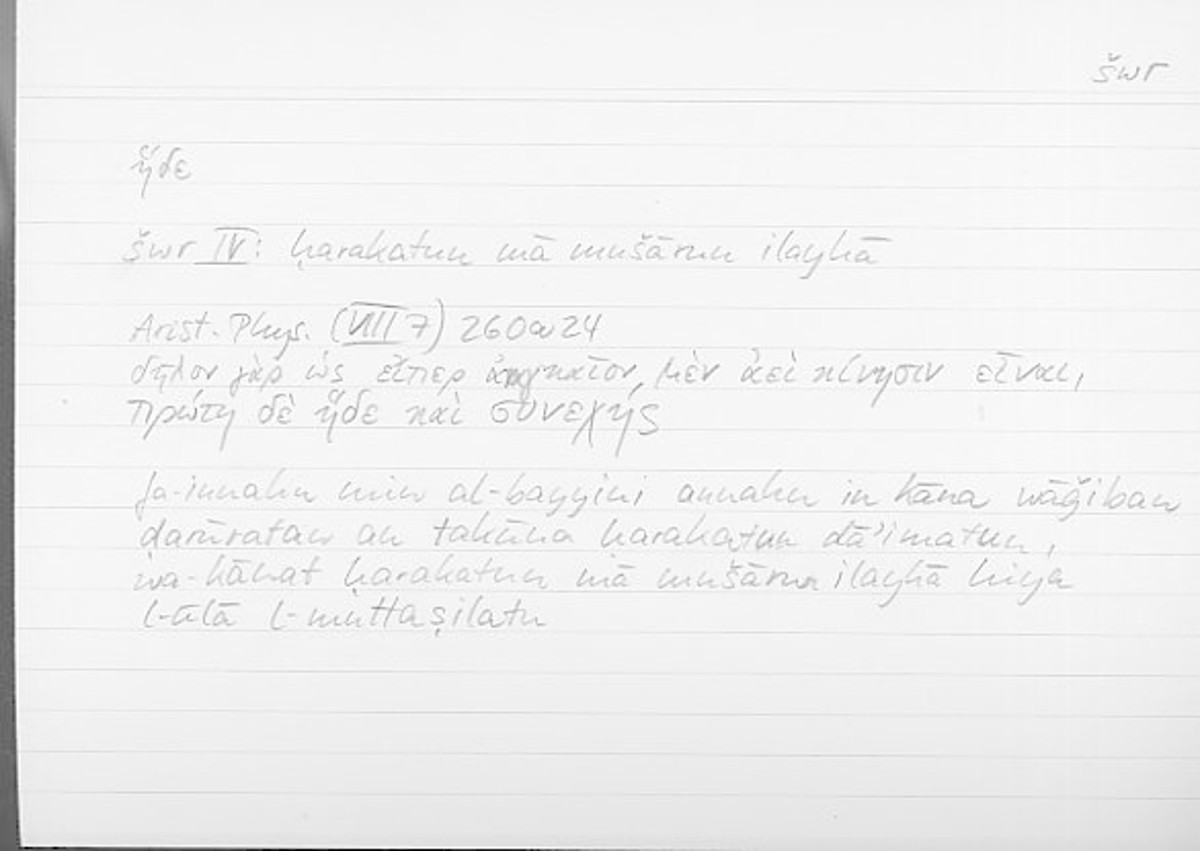 šwr
ἥδε
šwr IV: ḥarakatun mā mušārun ilayhā
Arist. Phys. (VIII 7) 260a24
δῆλον γὰρ ὡς εἴπερ ἀναγκαῖον μὲν ἀεὶ κίνησιν εἶναι,
πρώτη δὲ ἥδε καὶ συνεχής
fa-innahu min al-bayyini annahu in kāna wāǧiban
ḍarūratan an takūna ḥarakatun dā'imatun,
wa-kānat ḥarakatun mā mušārun ilayhā hiya
l-ūlā l-muttaṣilatu